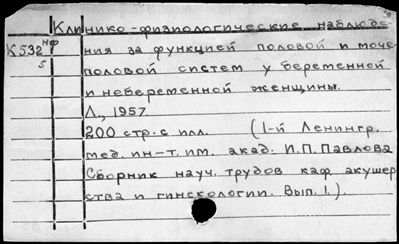 Клинико-физиологические наблюде-
К532 нф ния за функцией половой и моче-
5 половой систем у беременной
и небеременной женщины.
Л., 1957.
200 стр. с илл. (1-й Ленингр.
мед. ин-т. им. акад. И.П.Павлова
Сборник науч. трудов каф. акушер
ства и гинекологии. Вып. 1.).